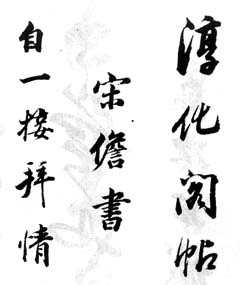 淳化阁帖
宋儋書
自一接拜情